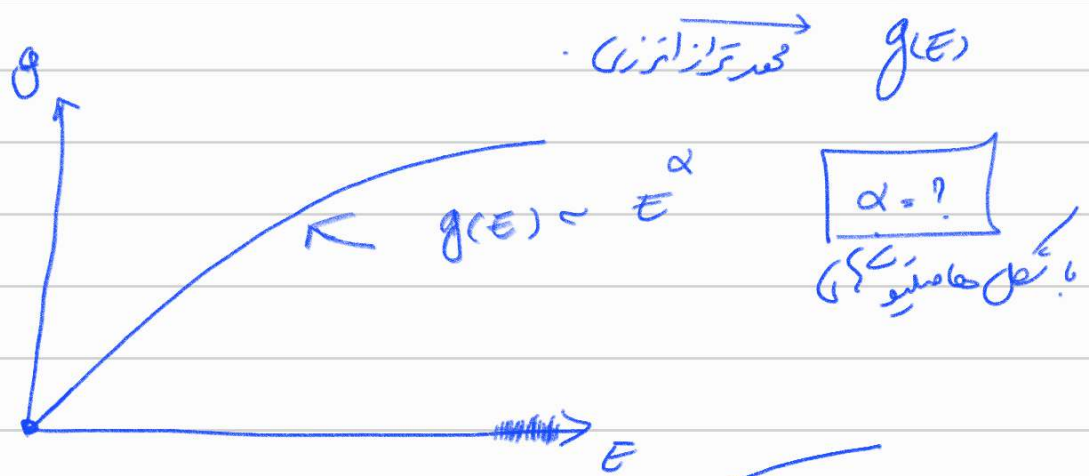 g(E) محور تراز انرژی .
g
g(E) ~ E^α
α = ?
با شکل هامیلتونی
E